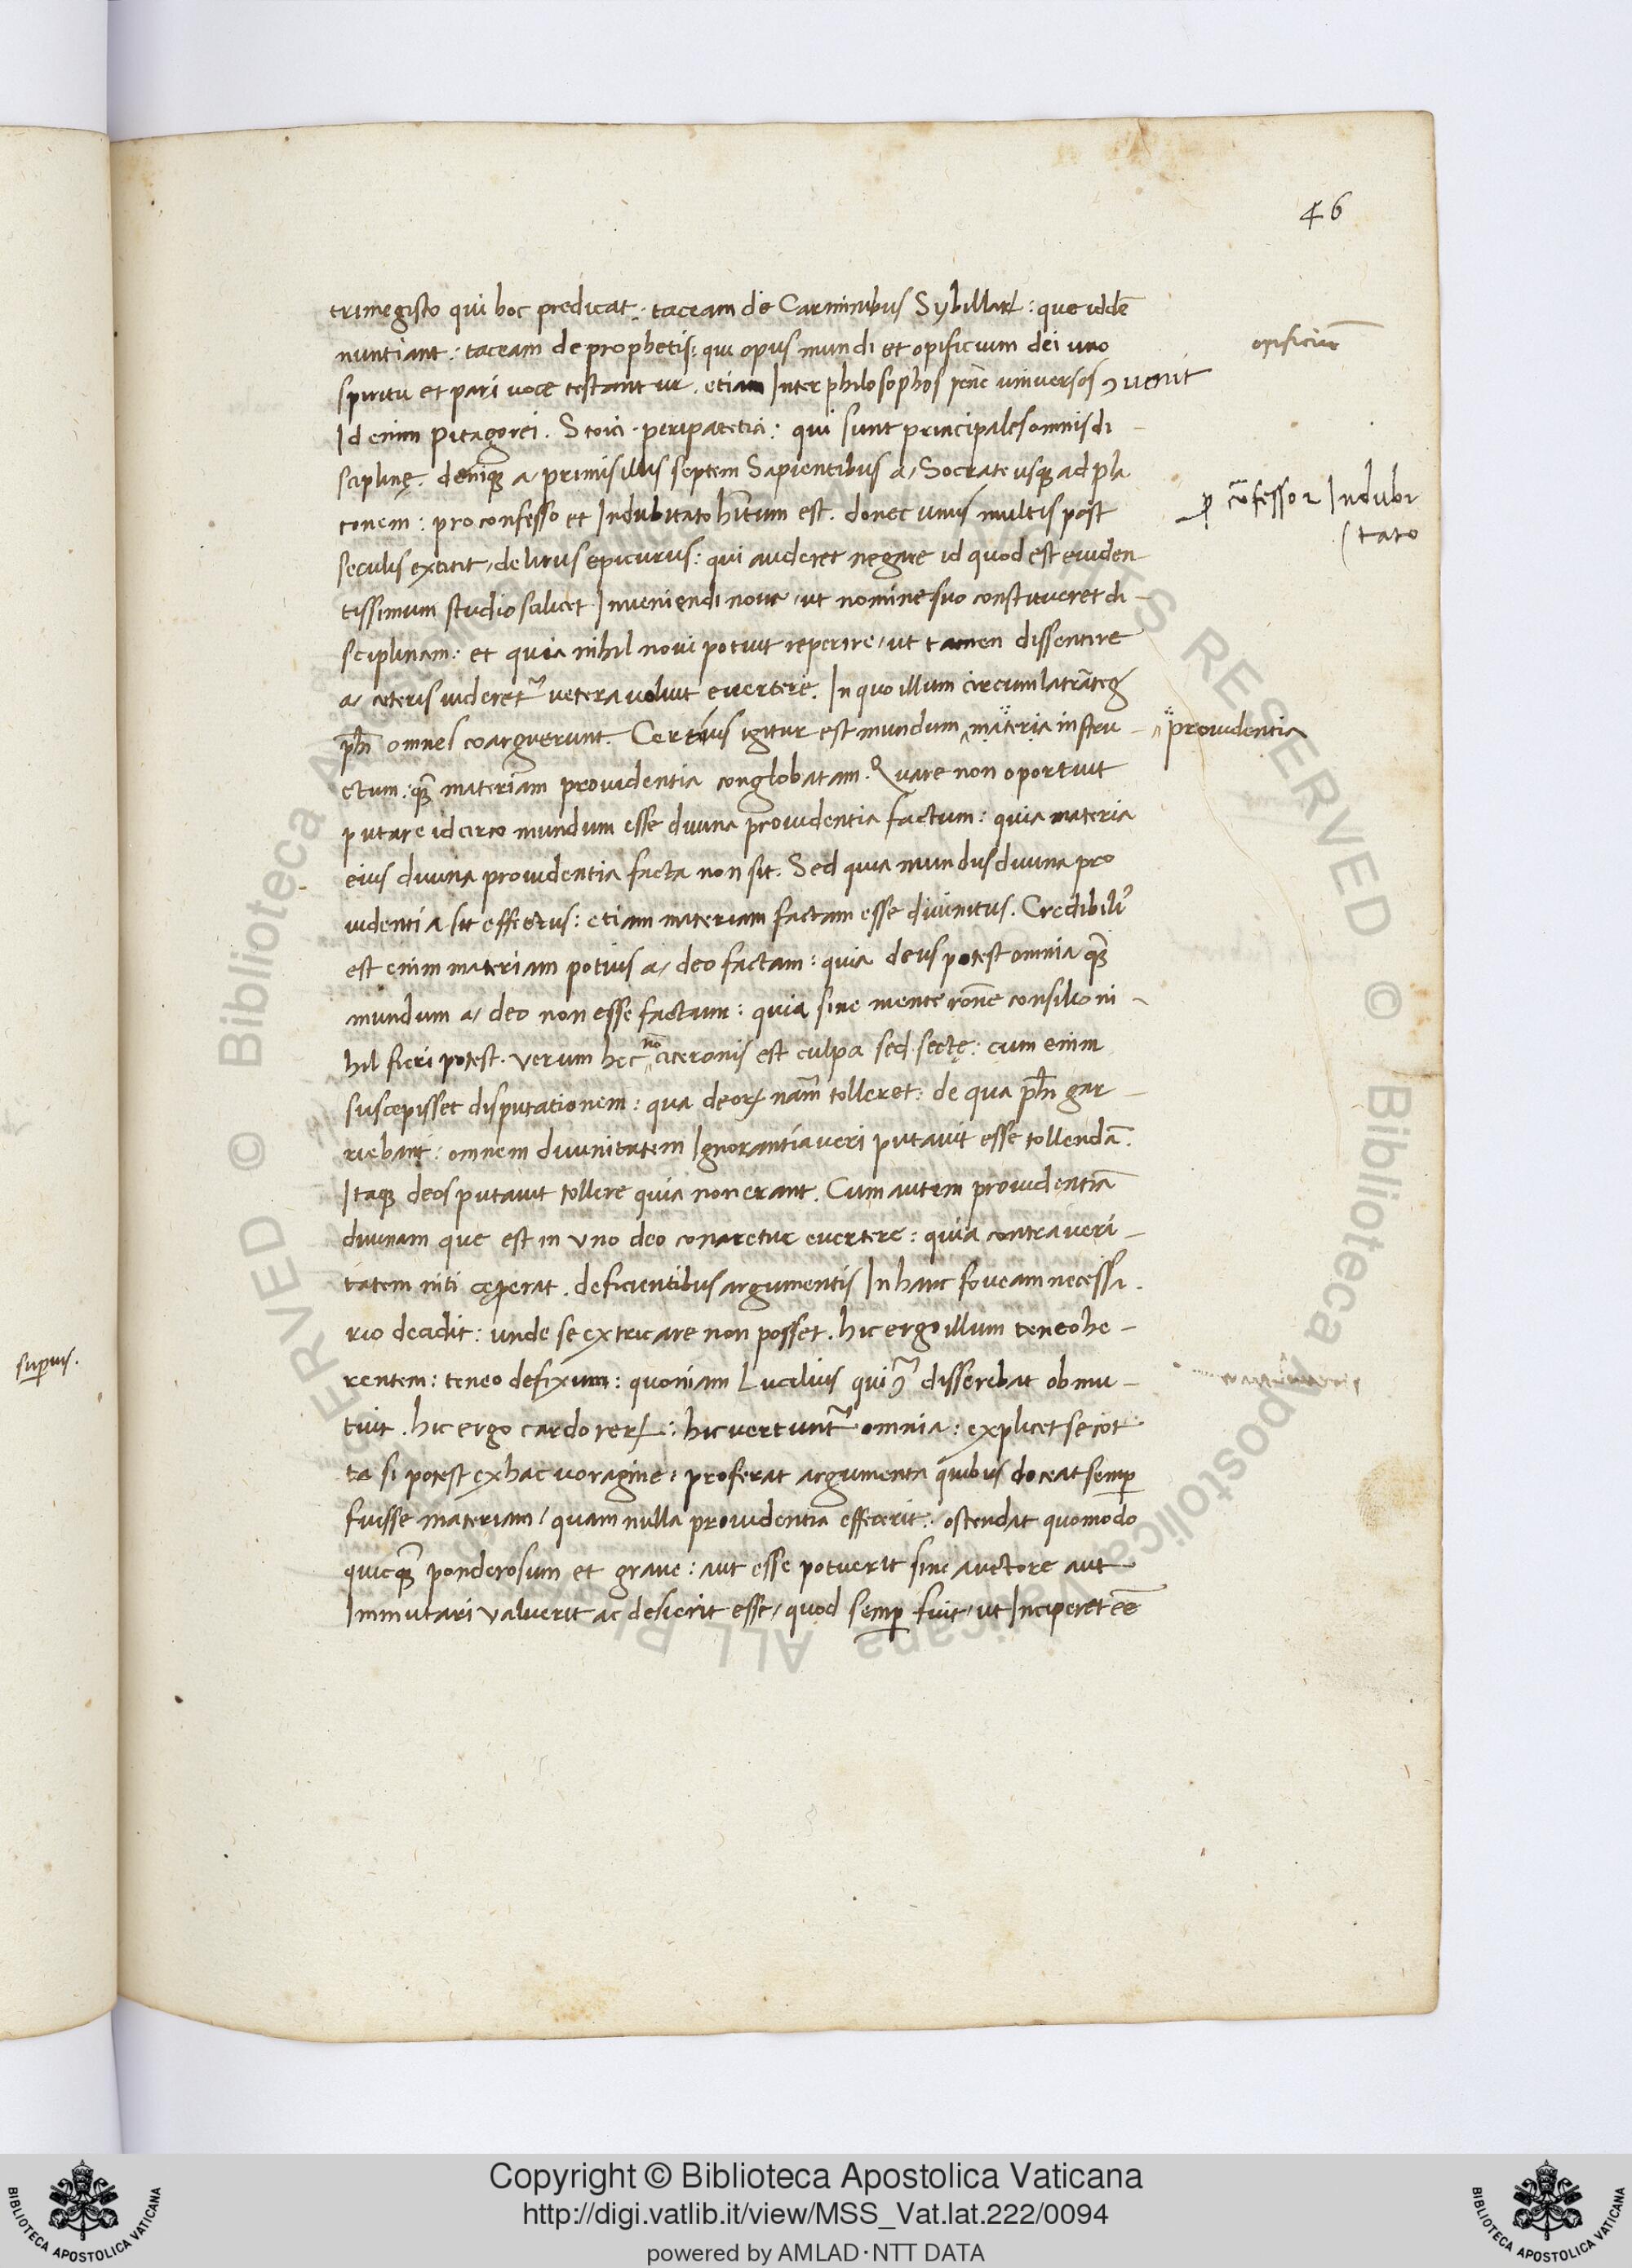 46
trimegisto qui hoc predicat. taceam de Carminibus Sybillaꝝ: que iddē
nuntiant: taceam de prophetis: qui opus mundi et opificium dei uno
opificiū
spiritu et pari uoce testantur. etiam Inter philosophos pene uniuersos ꝯuenit
Id enim pitagorei. Stoici. peripatetici: qui sunt principales omnis di-
sciplinę. deniqꝫ a primis illis septem Sapientibus a Socrate usqꝫ ad pla
tonem: pro confesso et Indubitato hītum est. donec unus multis post
p̱ cōfesso ⁊ Indubi
tato
seculis extitit, delirus epicurus: qui auderet negare id quod est euiden
tissimum studio scilicet Inueniendi noua, ut nomine suo constitueret di-
sciplinam: et quia nihil noui potuit reperire, ut tamen dissentire
a ceteris uideretᷣ uetera uoluit euertere. In quo illum circumlatrāteꝫ
ph̄i omnes coarguerunt. Certius igitur est mundum materia instru-
prouidentia
ctum: qꝫ̄ materiam prouidentia conglobatam. Quare non oportuit
putare idcirco mundum esse diuina prouidentia factum: quia materia
eius diuina prouidentia facta non sit. Sed quia mundus diuina pro
uidentia sit effectus: etiam materiam factam esse diuinitus. Credibiliꝰ
est enim materiam potius a deo factam: quia deus potest omnia qꝫ̄
mundum a deo non esse factum: quia sine mente rōne consilio ni-
hil fieri potest. Verum hęc nō ciceronis est culpa sed sectę: cum enim
suscepisset disputationem: qua deoꝝ nām tolleret: de qua ph̄i gar-
riebant: omnem diuinitatem Ignorantia ueri putauit esse tollendā.
Itaqꝫ deos putauit tollere quia non erant. Cum autem prouidentiā
diuinam que est in uno deo conaretur euertere: quia contra ueri-
tatem niti cęperat. deficientibus argumentis In hanc foueam necessa.
rio decidit: unde se extricare non posset. hic ergo illum teneo he-
rentem: teneo defixum: quoniam Lucilius qui ꝯᷓ disserebat obmu-
tuit. hic ergo cardo reꝝ: hic uertuntᷣ omnia: explicet se cot
ta si potest ex hac uoragine: proferat argumenta quibus doceat semꝑ
fuisse materiam, quam nulla prouidentia effecerit: ostendat quomodo
quicqꝫ̄ ponderosum et graue: aut esse potuerit sine auctore aut
Immutari ualuerit ac desierit esse, quod semꝑ fuit, ut Inciperet eē
suꝑius.
Copyright © Biblioteca Apostolica Vaticana
http://digi.vatlib.it/view/MSS_Vat.lat.222/0094
powered by AMLAD·NTT DATA
BIBLIOTECA APOSTOLICA VATICANA
BIBLIOTECA APOSTOLICA VATICANA
© Biblioteca Apostolica Vaticana ALL RIGHTS RESERVED © Biblioteca Apostolica Vaticana ALL RIGHTS RESERVED